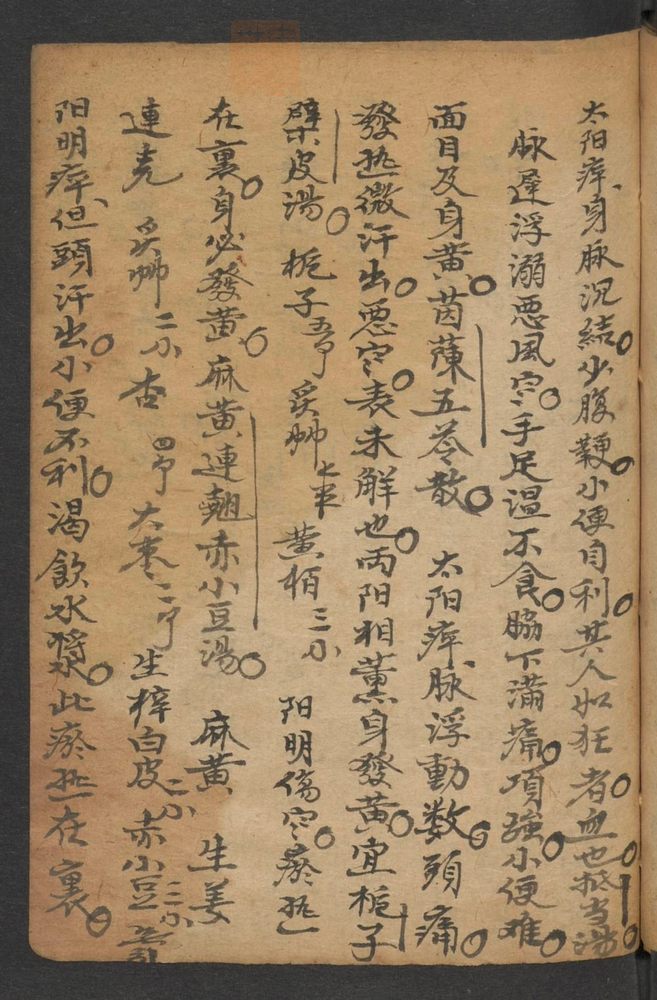 太阳痺、身脉沉結。少腹鞕。小便自利。其人如狂者。血也。抵当湯。
脉遲浮溺。悪風寒。手足温。不食。脇下滿痛。項強。小便难。
面目及身黄。茵蔯五苓散。 太阳痺、脉浮動数。頭痛。
發热微汗出。悪寒。表未解也。両阳相薫。身發黄。宜栀子
檗皮湯。 栀子 炙 黄栢 三小 阳明傷寒。瘀热
在裏。身必發黄。麻黄連翹赤小豆湯。 麻黄 生姜
連壳 炙 二小 杏 大棗 生梓白皮 二小 赤小豆 三小
阳明痺、但頭汗出。小便不利。渴飲水漿。此瘀热在裏。